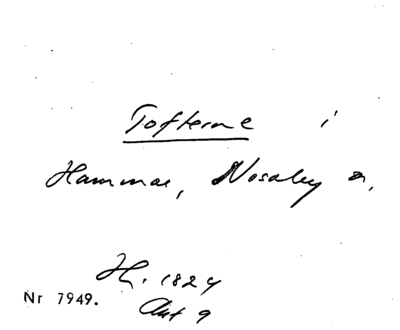 Tofterne i
Hammar, Nosaby
H. 1824
Nr 7949.